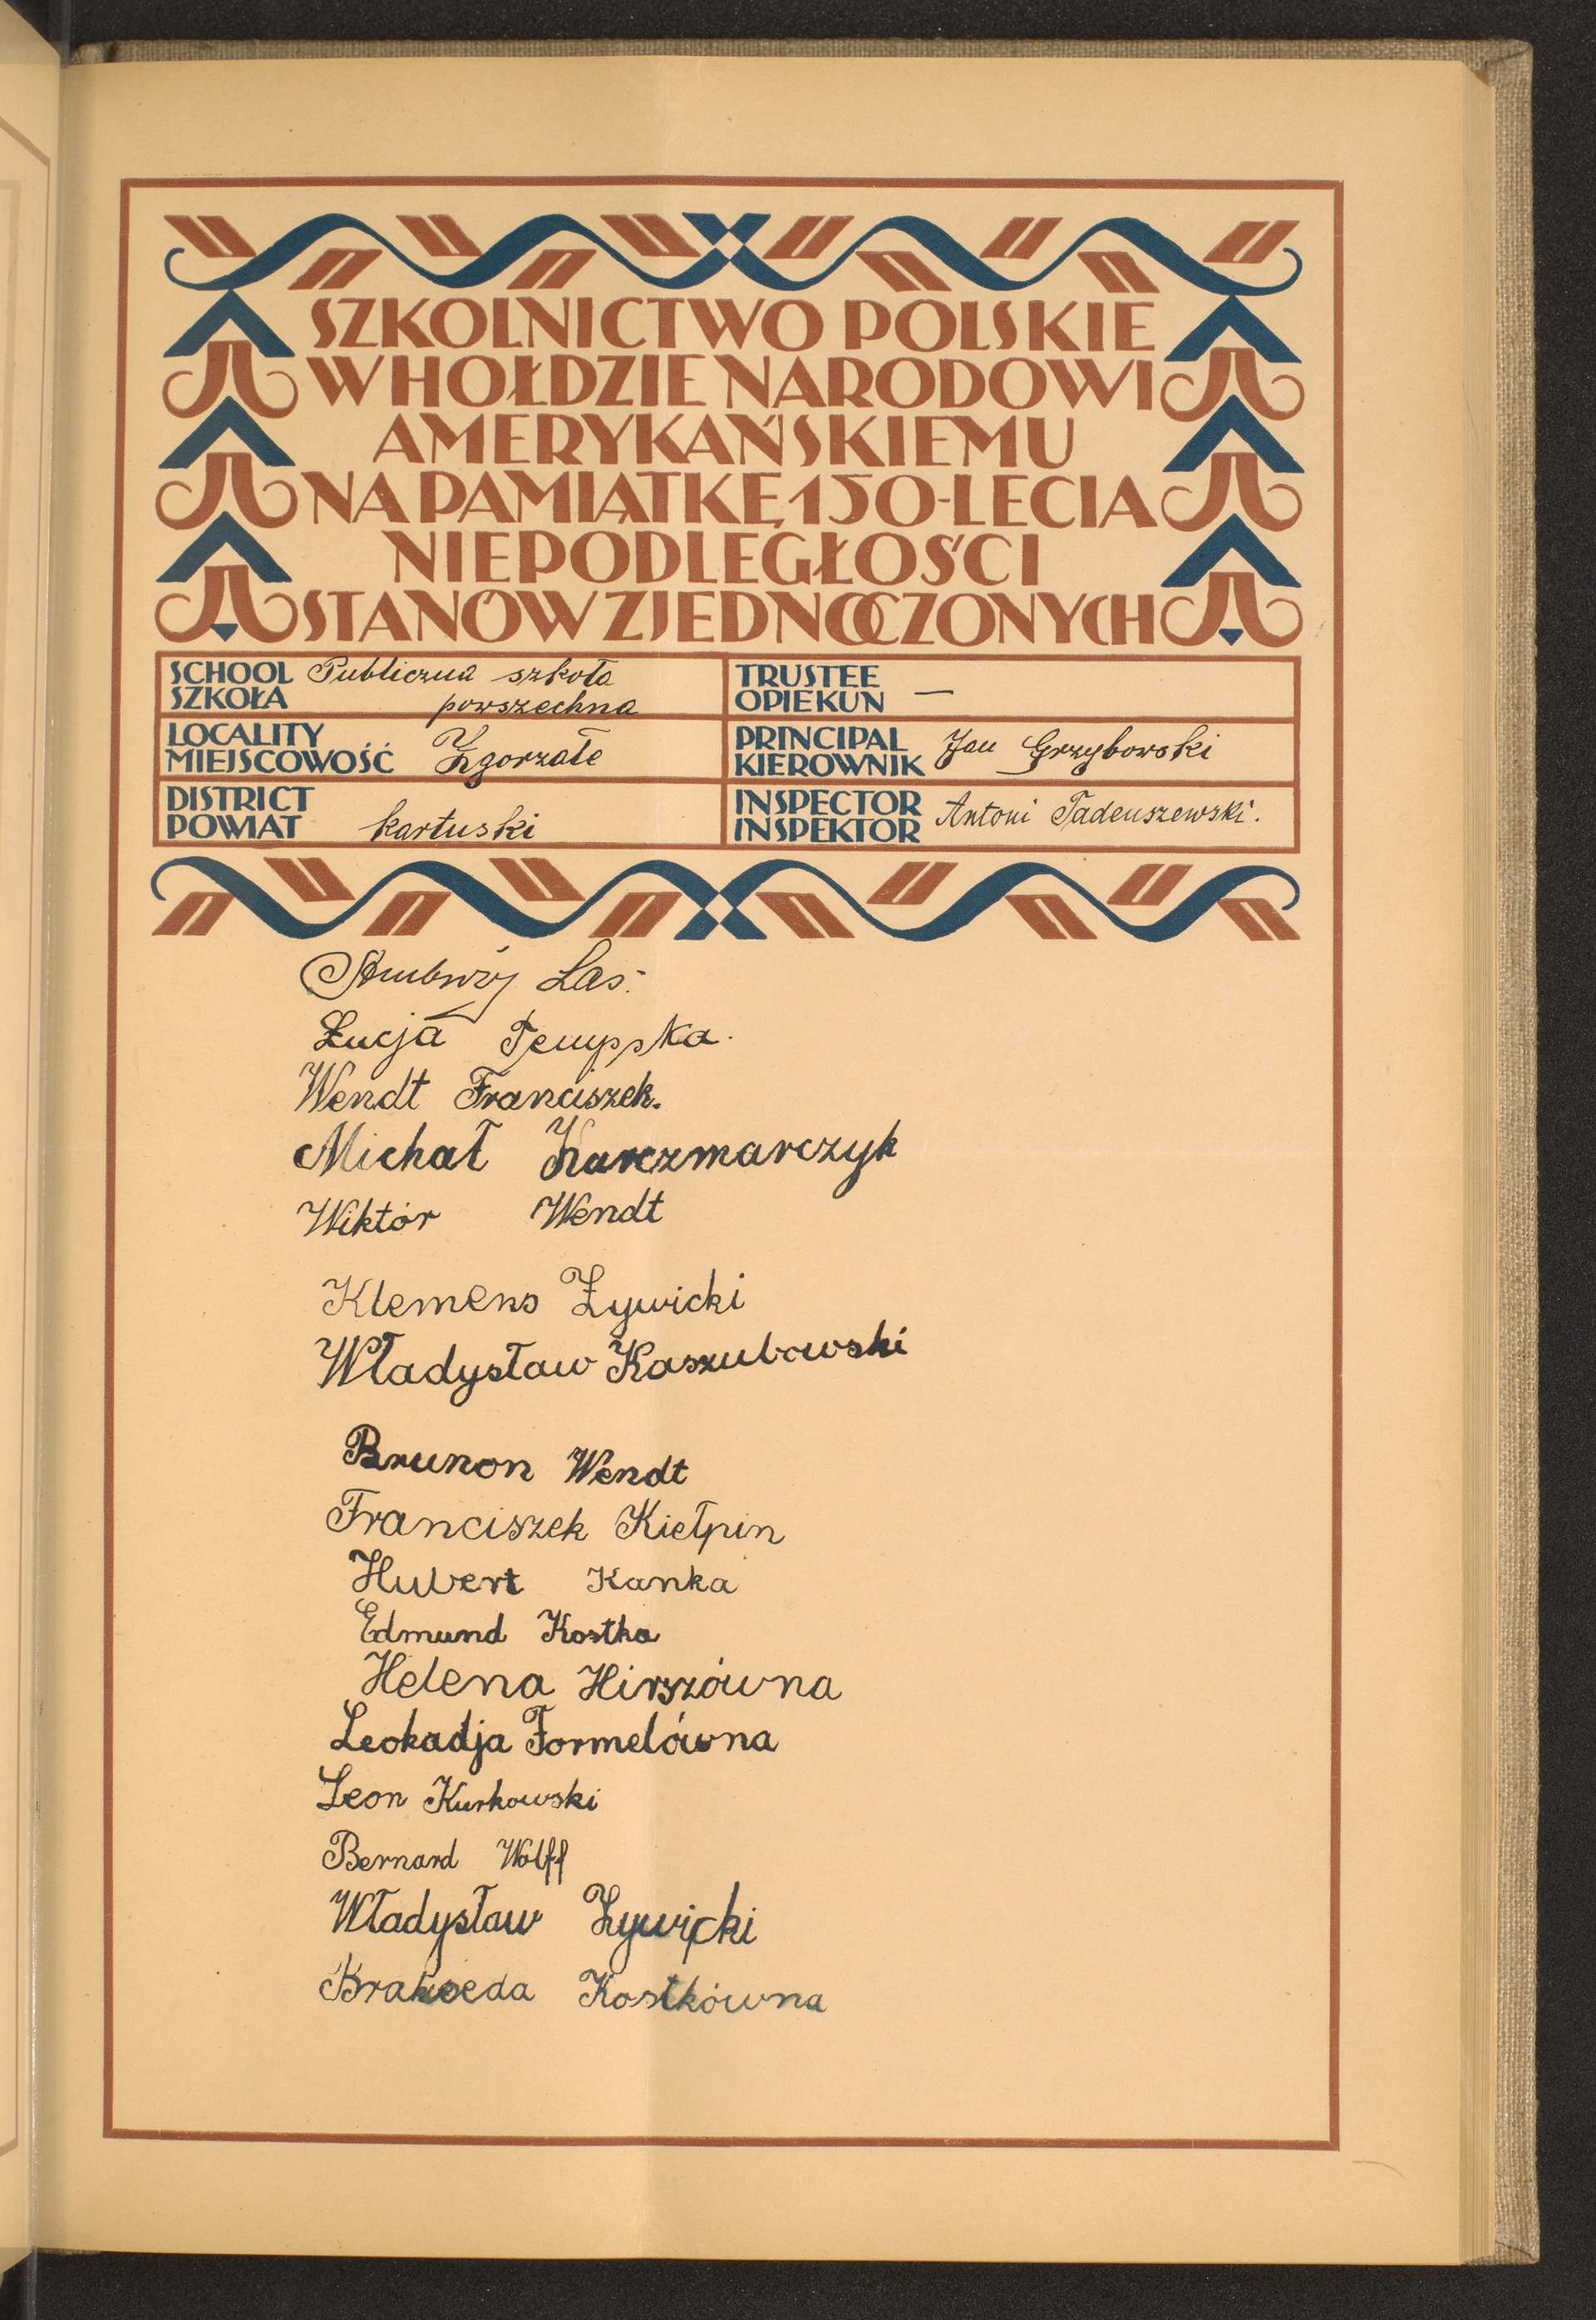 SZKOLNICTWO POLSKIE
W HOŁDZIE NARODOWI
AMERYKAŃSKIEMU
NA PAMIĄTKĘ 150-LECIA
NIEPODLEGŁOŚCI
STANÓW ZJEDNOCZONYCH
SCHOOL
SZKOŁA
Publiczna szkoła
powszechna
TRUSTEE
OPIEKUN —
LOCALITY
MIEJSCOWOŚĆ Zgorzałe
PRINCIPAL
KIEROWNIK Jan Grzybowski
DISTRICT
POWIAT kartuski
INSPECTOR
INSPEKTOR Antoni Tadeuszewski.
Las.
Łucja Tempska.
Wendt Franciszek.
Michał Karczmarczyk
Wiktór Wendt
Klemens Żywicki
Władysław Kaszubowski
Brunon Wendt
Franciszek Kiełpin
Hubert Kanka
Edmund Kostka
Helena Hirszówna
Leokadja Formelówna
Leon Kurkowski
Bernard Wolff
Władysław Żywicki
Kostkówna